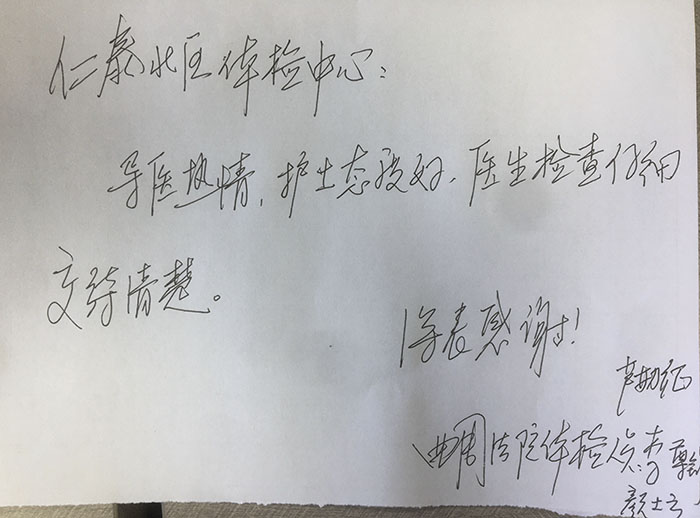 仁泰北区体检中心：
导医热情，护士态度好，医生检查仔细
交待清楚。
深表感谢！
曲周法院体检人员：
颜士云